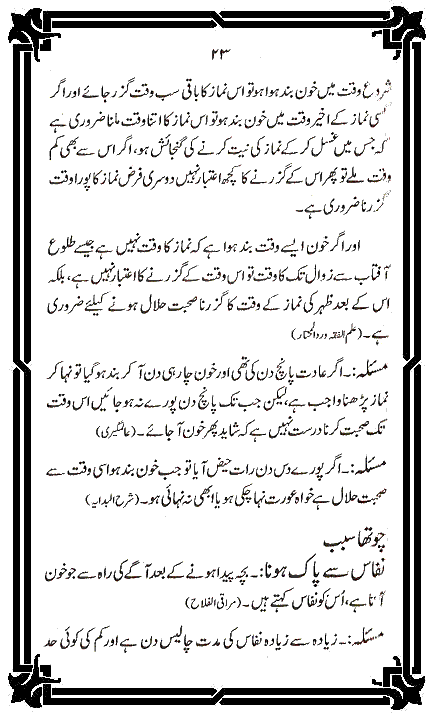 ۲۳
شروع وقت میں خون بند ہوا ہو تو اس نماز کا باقی سب وقت گزر جائے اور اگر
کسی نماز کے اخیر وقت میں خون بند ہو تو اس نماز کا اتنا وقت ملنا ضروری ہے
کہ جس میں غسل کر کے نماز کی نیت کرنے کی گنجائش ہو، اگر اس سے بھی کم
وقت ملے تو پھر اس کے گزرنے کا کچھ اعتبار نہیں دوسری فرض نماز کا پورا وقت
گزرنا ضروری ہے۔
اور اگر خون ایسے وقت بند ہوا ہے کہ نماز کا وقت نہیں ہے جیسے طلوع
آفتاب سے زوال تک کا وقت تو اس وقت کے گزرنے کا اعتبار نہیں ہے، بلکہ
اس کے بعد ظہر کی نماز کے وقت کا گزرنا صحبت حلال ہونے کیلئے ضروری
ہے۔ (علم الفقہ وردالمختار)
مسئلہ:۔ اگر عادت پانچ دن کی تھی اور خون چار ہی دن آ کر بند ہو گیا تو نہا کر
نماز پڑھنا واجب ہے، لیکن جب تک پانچ دن پورے نہ ہو جائیں اس وقت
تک صحبت کرنا درست نہیں ہے کہ شاید پھر خون آ جائے۔ (عالمگیری)
مسئلہ:۔ اگر پورے دس دن رات حیض آیا تو جب خون بند ہوا سی وقت سے
صحبت حلال ہے خواہ عورت نہا چکی ہو یا ابھی نہ نہائی ہو۔ (شرح البدایہ)
چوتھا سبب
نفاس سے پاک ہونا:۔ بچہ پیدا ہونے کے بعد آگے کی راہ سے جو خون
آتا ہے، اُس کو نفاس کہتے ہیں۔ (مراقی الفلاح)
مسئلہ:۔ زیادہ سے زیادہ نفاس کی مدت چالیس دن ہے اور کم کی کوئی حد